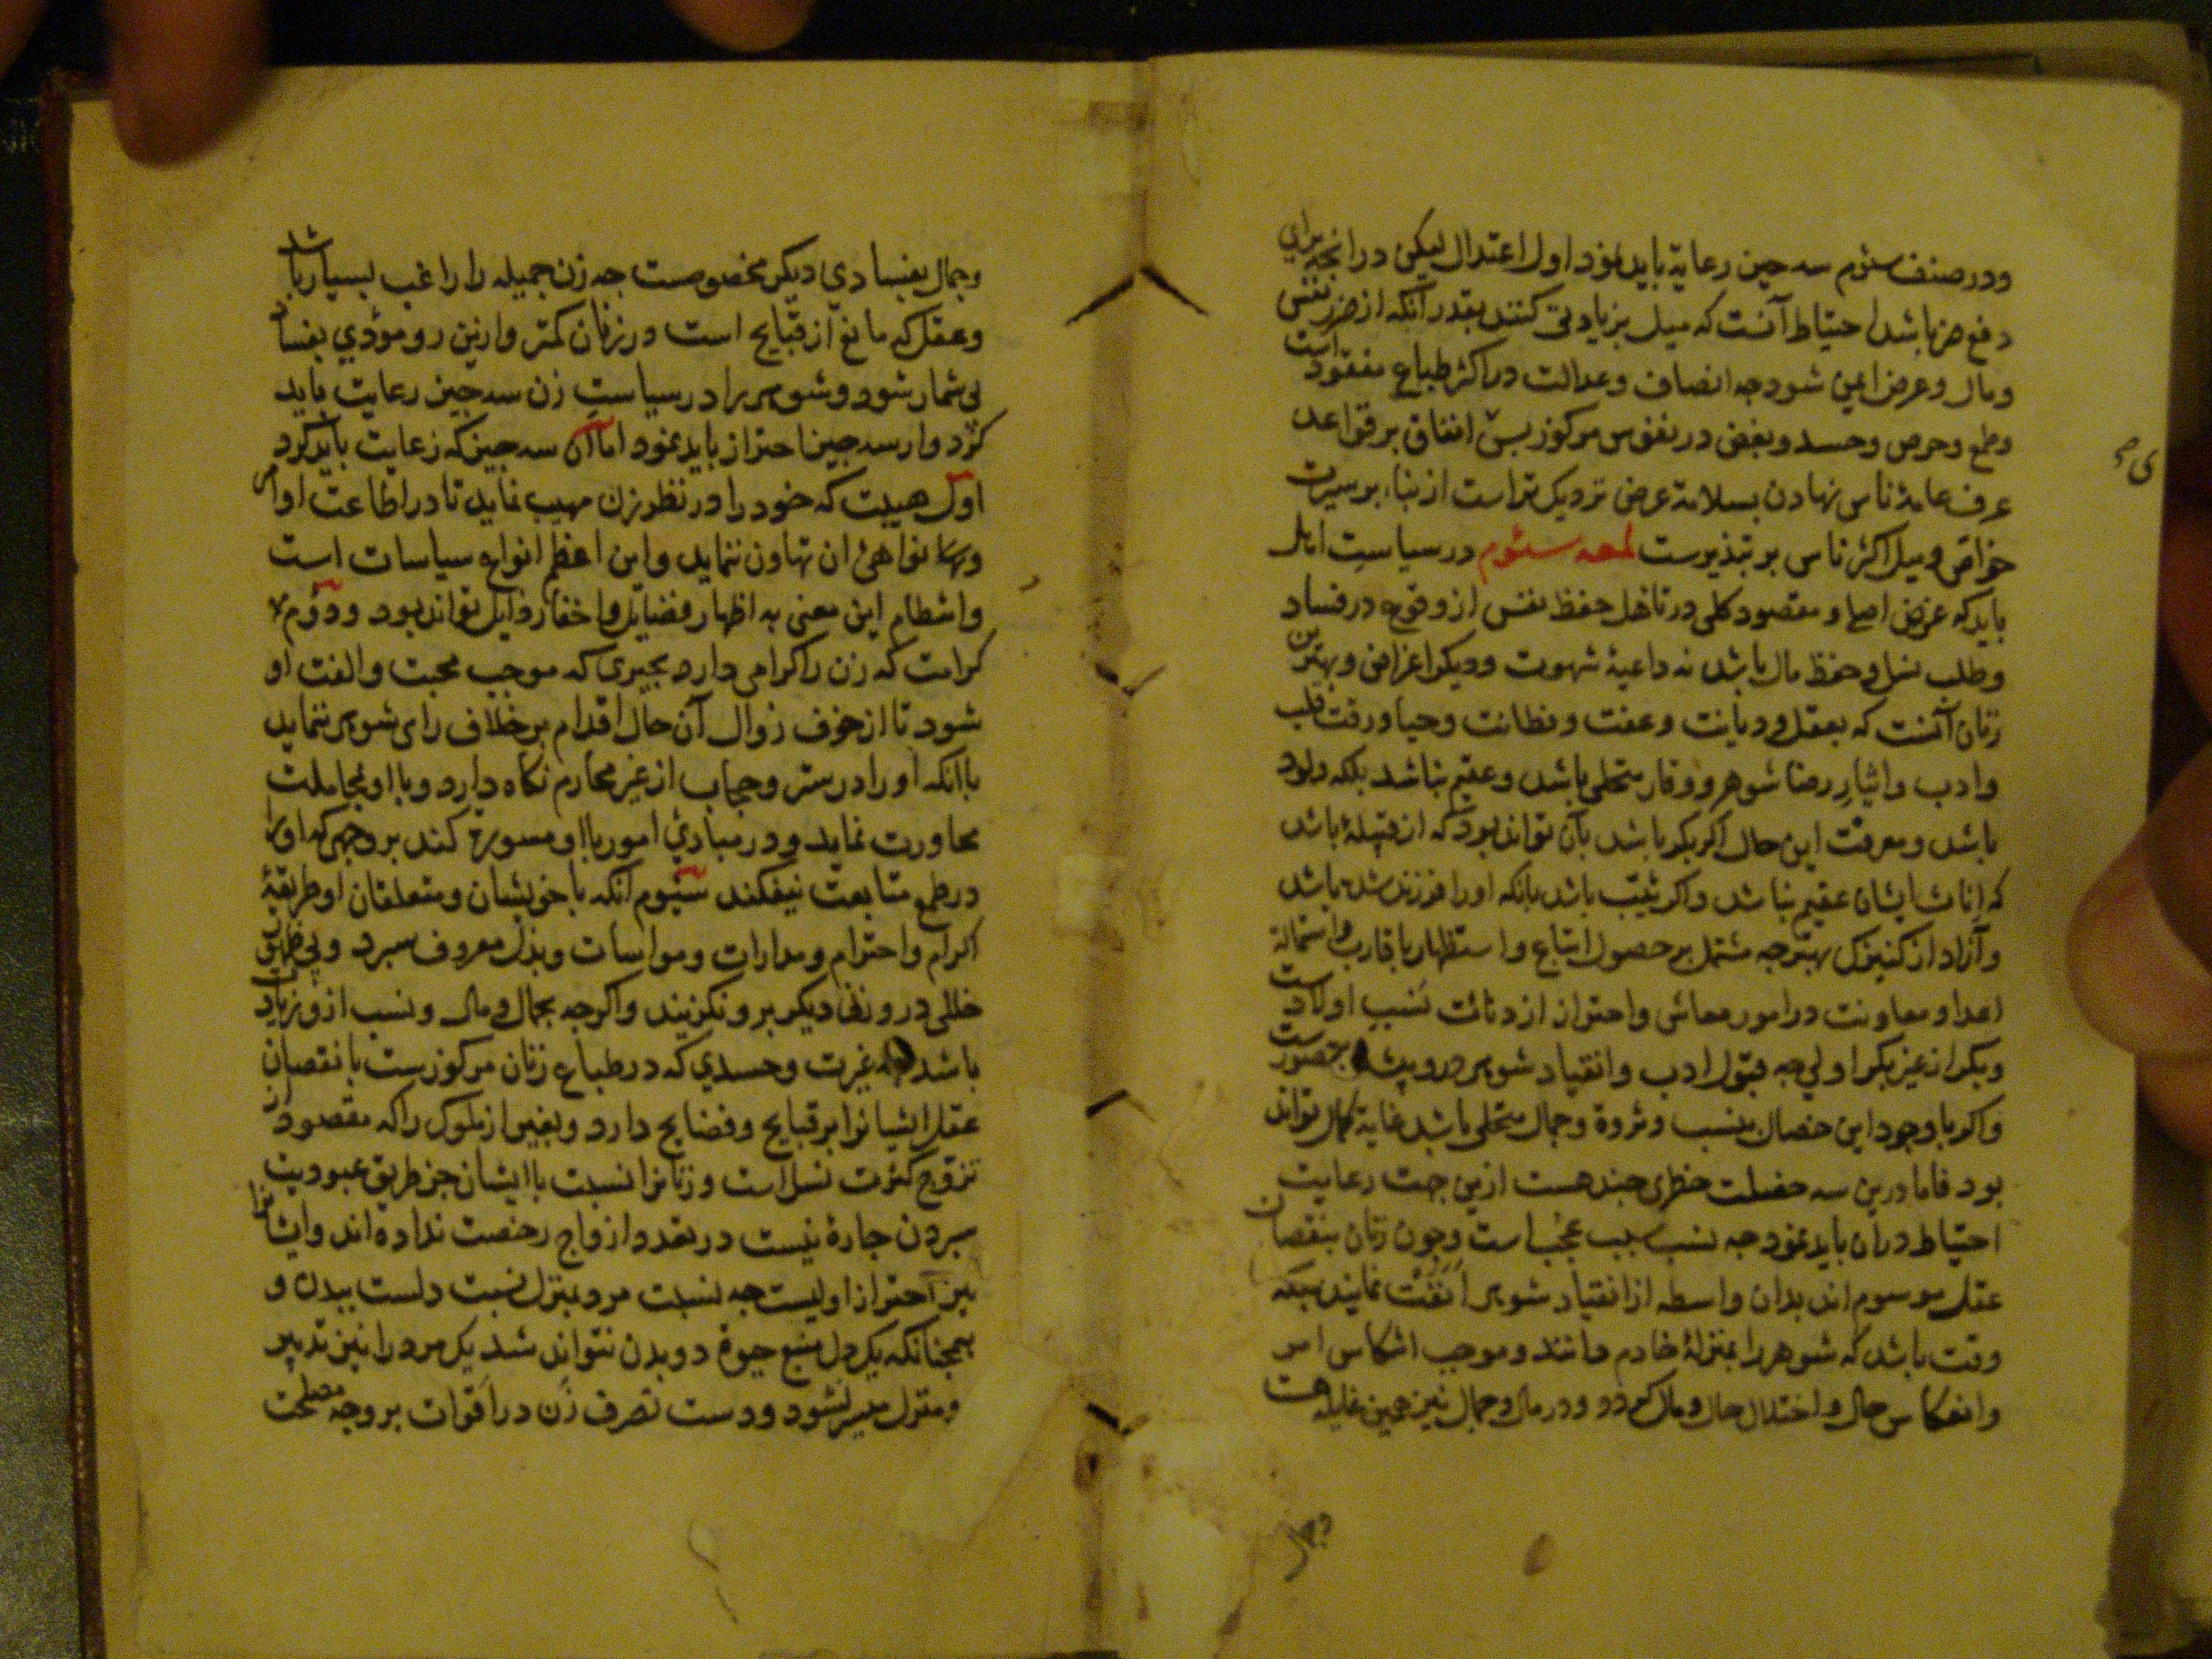 ودر صنف سئوم سه چیز رعایة باید نمود اول اعتدال لیکن در انچه برای
دفع ضر باشد احتیاط آنست که میل بزیادتی کنند بقدر آنکه از ضرر نفس
ومال وعرض ایمن شود چه انصاف وعدالت در اکثر طباع مفقود است
وطمع وحرص وحسد وبغض در نفوس مرکوز پس انفاق بر قواعد
عرف عامهٔ ناس نهادن بسلامة عرض نزدیک تر است از بناء بر سیرت
خواص ومیل اکثر ناس بر تبذیرست لمعه سئوم در سیاست اهل
باید که غرض اصلی و مقصود کلی در تاهل حفظ نفس از وقوع در فساد
وطلب نسل وحفظ مال باشد نه داعیهٔ شهوت ودیگر اغراض وبهترین
زنان آنست که بعقل ودیانت وعفت وفطانت وحیا ورقت قلب
وادب وایثار رضا شوهر ووقار متحلی باشد وعقیم نباشد بلکه ولود
باشد ومعرفت این حال اگر بکر باشد بآن تواند بود که از قبیلهٔ باشد
که اناث ایشان عقیم نباشد واگر ثیب باشد بانکه اورا فرزند شده باشد
وآزاد از کنیزک بهتر چه مشتمل بر حصول اتباع واستظهار باقارب واستمالة
اعدا و معاونت در امور معاش واحتراز از دنائت نسب اولادست
وبکر از غیر بکر اولی چه قبول ادب وانقیاد شوهر درو بیشتر متصورست
واگر با وجود این خصال بنسب وثروة وجمال متحلی باشد غایة کمال تواند
بود فاما درین سه خصلت خطری چند هست ازین جهت رعایت
احتیاط دران باید نمود چه نسب سبب عجب است وچون زنان بنقصان
عقل موسوم اند بدان واسطه از انقیاد شوهر انفت نمایند بلکه
وقت باشد که شوهر را بمنزلهٔ خادم دانند وموجب انتکاس امر
وانعکاس حال واختلال حال ومال کردد ودر مال وجمال نیز همین غایله هست
وجمال
وجمال بفسادی دیکر مخصوصست چه زن جمیله را راغب بسیار باشد
وعقل که مانع از قبایح است در زنان کمتر وازین رو مؤدي بفساد
بی شمار شود وشوهر را در سیاست زن سه چیز رعایت باید
کرد واز سه چیز احتراز باید نمود اما آن سه چیز که رعایت باید کرد
اول هیبت که خود را در نظر زن مهیب نماید تا در اطاعت اوامر
ونواهئ ان تهاون ننماید واین اعظم انواع سیاسات است
وانتظام این معنی به اظهار فضایل واخفاء رذایل تواند بود ودوم
کرامت که زن را کرامی دارد بچیزی که موجب محبت والفت او
شود تا از خوف زوال آن حال اقدام بر خلاف رای شوهر ننماید
باانکه اورا در ستر وحجاب از غیر محارم نکاه دارد وبا او بمجاملت
محاورت نماید ودر مبادئ امور با او مشورة کند بر وجهی که اورا
در طمع متابعت نیفکند سئیوم آنکه با خویشان ومتعلقان او طریقهٔ
اکرام واحترام ومدارات ومواسات وبذل معروف سپرد وبی ظهور
خللی درو زنی دیکر برو نکزیند واکرچه بجمال ومال ونسب ازو زیادت
باشد چه غیرت وحسدی که در طباع زنان مرکوزست با نقصان
عقل ایشانرا بر قبایح وفضایح دارد وبغیر از ملوک را که مقصود از
تزوج کثرت نسل است وزنانرا نسبت باایشان جز طریق عبودیت
سپردن چارهٔ نیست در تعدد ازواج رخصت نداده اند وایشانرا
نیز احتراز اولیست چه نسبت مرد بمنزل نسبت دلست ببدن و
همچنانکه یک دل منبع حیوة دو بدن نتواند شد یک مرد را نیز تدبیر
دو منزل میسر نشود ودست تصرف زن در اقوات بر وجه مصلحت